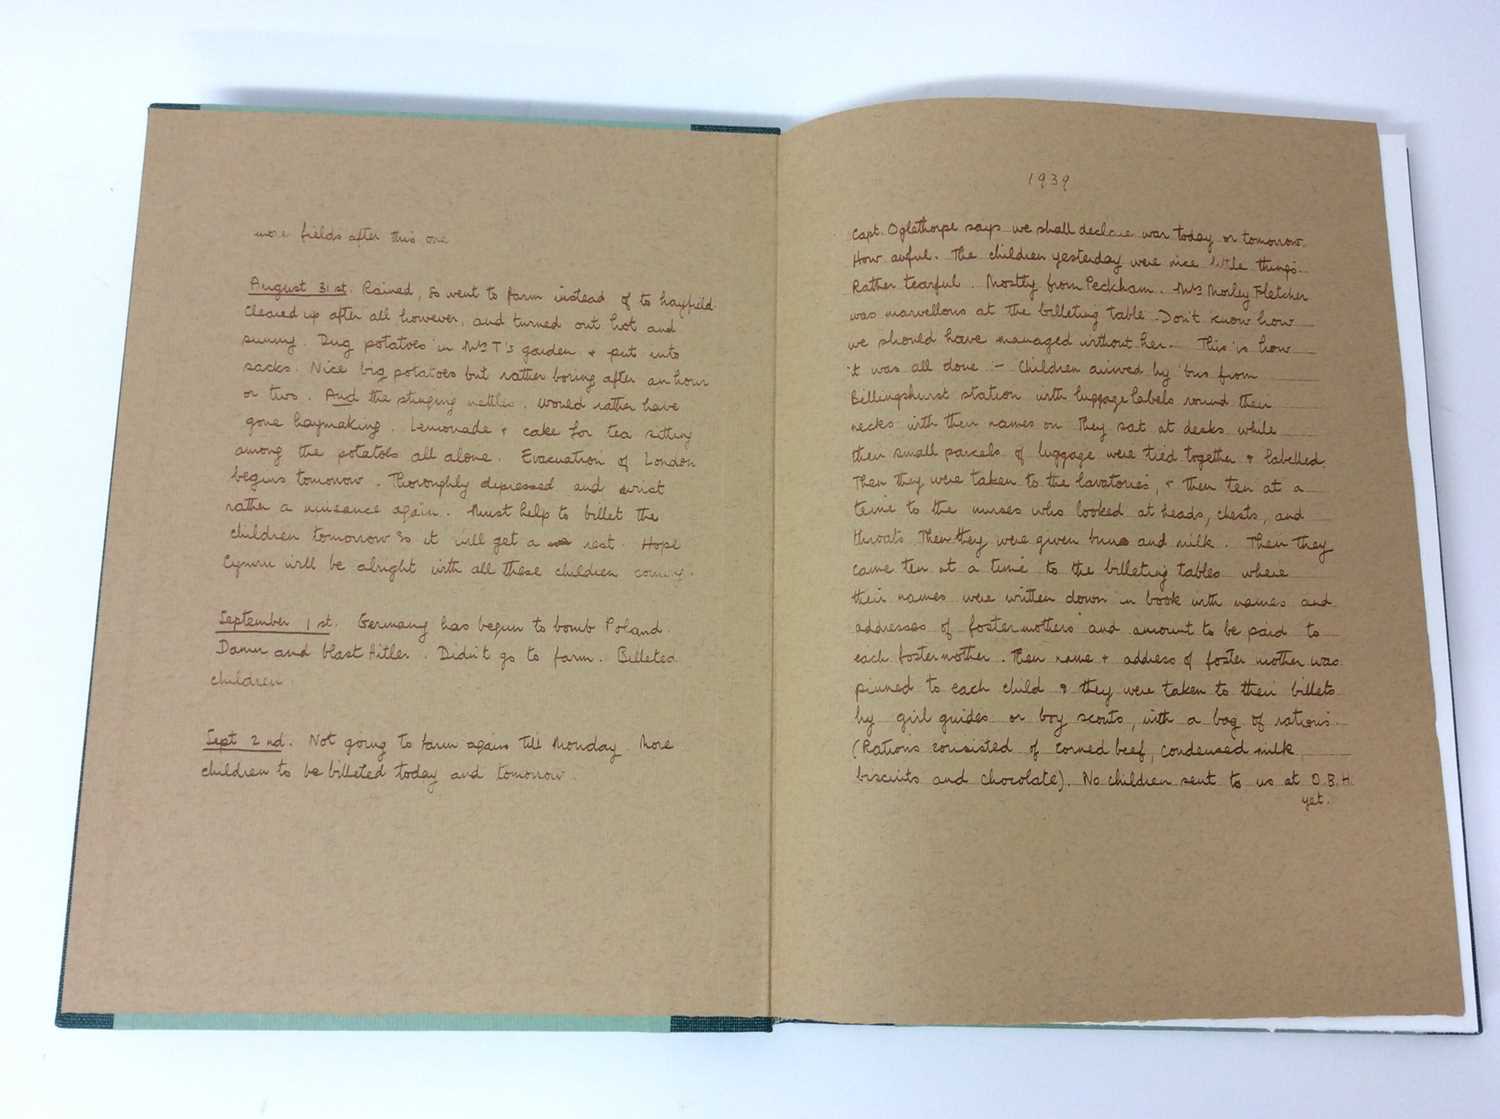 more fields after this one
August 31st. Rained, so went to farm instead of to hayfield.
Cleared up after all however, and turned out hot and
sunny. Dug potatoes in Mrs T's garden + put into
sacks. Nice big potatoes but rather boring after an hour
or two. And the stinging nettles. Would rather have
gone haymaking. Lemonade + cake for tea sitting
among the potatoes all alone. Evacuation of London
begins tomorrow. Thoroughly depressed and wrist
rather a nuisance again. Must help to billet the
children tomorrow so it will get a rest. Hope
Cymru will be alright with all these children coming.
September 1st. Germany has begun to bomb Poland.
Damn and blast Hitler. Didn't go to farm. Billeted
children.
Sept 2nd. Not going to farm again till Monday. More
children to be billeted today and tomorrow.
1939
Capt. Oglethorpe says we shall declare war today or tomorrow.
How awful. The children yesterday were nice little things.
Rather tearful. Mostly from Peckham. Mrs Morley Fletcher
was marvellous at the billeting table. Don't know how
we should have managed without her. This is how
it was all done :- Children arrived by 'bus from
Billingshurst station with luggage labels round their
necks with their names on. They sat at desks while
their small parcels of luggage were tied together + labelled.
Then they were taken to the lavatories, + then ten at a
time to the nurses who looked at heads, chests, and
throats. Then they were given buns and milk. Then they
came ten at a time to the billeting tables where
their names were written down in book with names and
addresses of foster mothers and amount to be paid to
each foster mother. Then name + address of foster mother was
pinned to each child + they were taken to their billets
by girl guides or boy scouts, with a bag of rations.
(Rations consisted of corned beef, condensed milk,
biscuits and chocolate). No children sent to us at O.B.H.
yet.